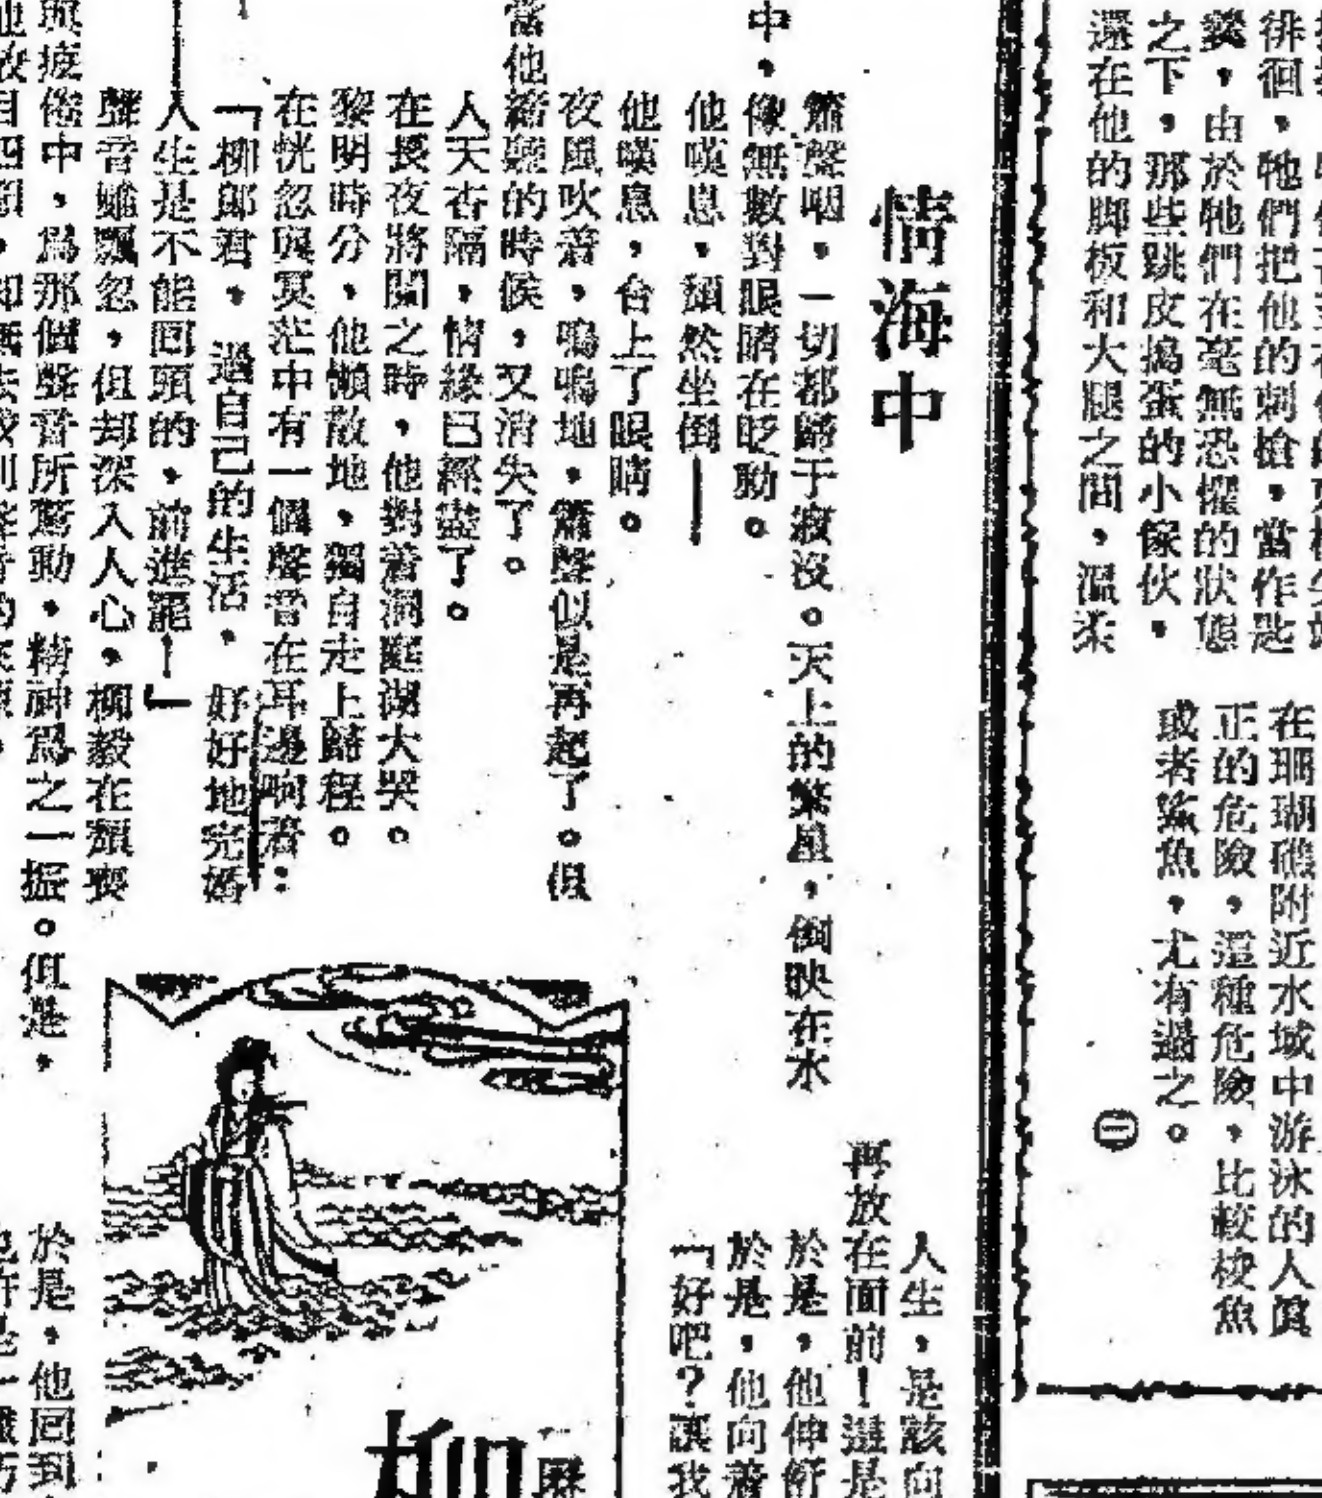 徘徊，牠們把他的刺槍，當作匙
，由於牠們在毫無恐懼的狀態
之下，那些跳皮搗蛋的小傢伙，
還在他的脚板和大腿之間，溫柔
在珊瑚礁附近水域中游泳的人眞
正的危險，這種危險，比較梭魚
或者鯊魚，尤有過之。
㊁
情海中
簫聲咽，一切都歸于寂沒。天上的繁星，倒映在水
中，像無數對眼睛在眨動。
他嘆息，頹然坐倒——
他嘆息，合上了眼睛。
夜風吹着，嗚嗚地，簫聲似是再起了。但
當他諦聽的時候，又消失了。
人天杳隔，情緣已經盡了。
在長夜將闌之時，他對着洞庭湖大哭。
黎明時分，他懶散地，獨自走上歸程。
在恍忽與冥茫中有一個聲音在耳邊响着：
「柳郎君，過自己的生活，好好地完婚
——人生是不能回頭的，前進罷！」
聲音雖飄忽，但却深入人心，柳毅在頹喪
與疲倦中，爲那個聲音所驚動，精神爲之一振。但是，
人生，是該向
再放在面前！這是
於是，他伸
於是，他向着
「好吧？讓我
於是，他回到
柳